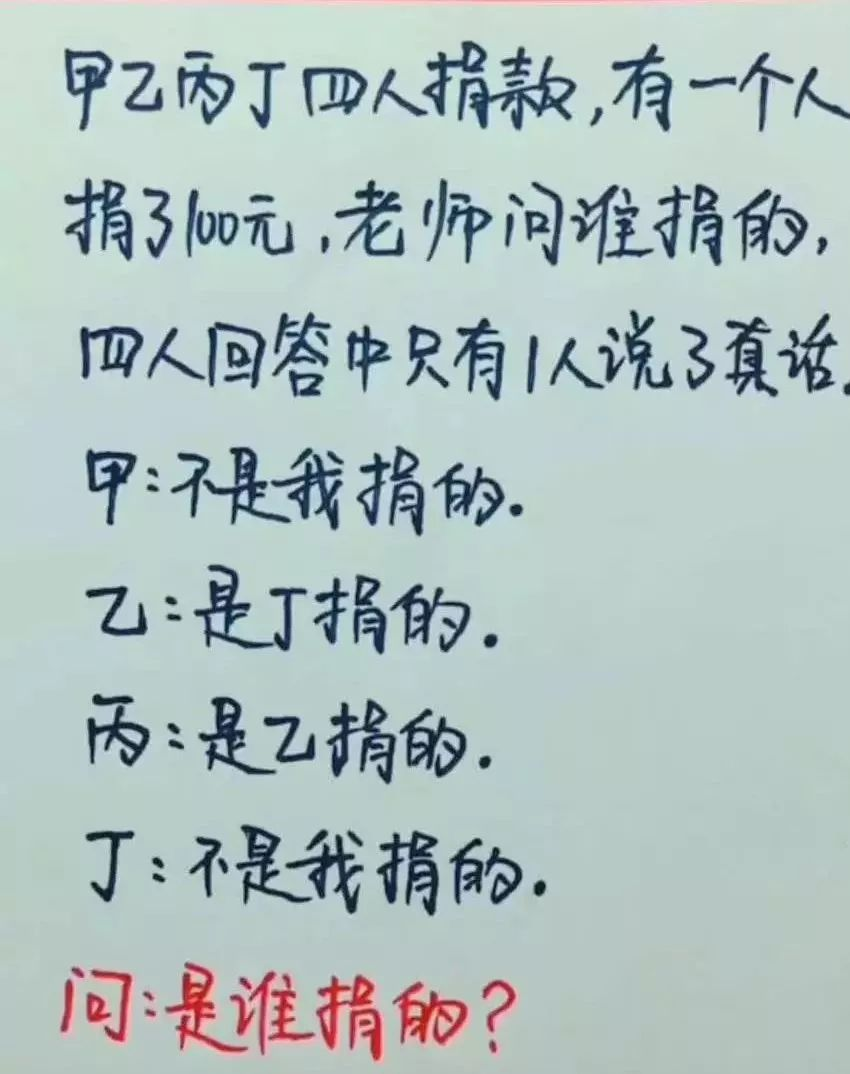 甲乙丙丁四人捐款,有一个人
捐了100元,老师问谁捐的,
四人回答中只有1人说了真话.
甲:不是我捐的.
乙:是丁捐的.
丙:是乙捐的.
丁:不是我捐的.
问:是谁捐的?